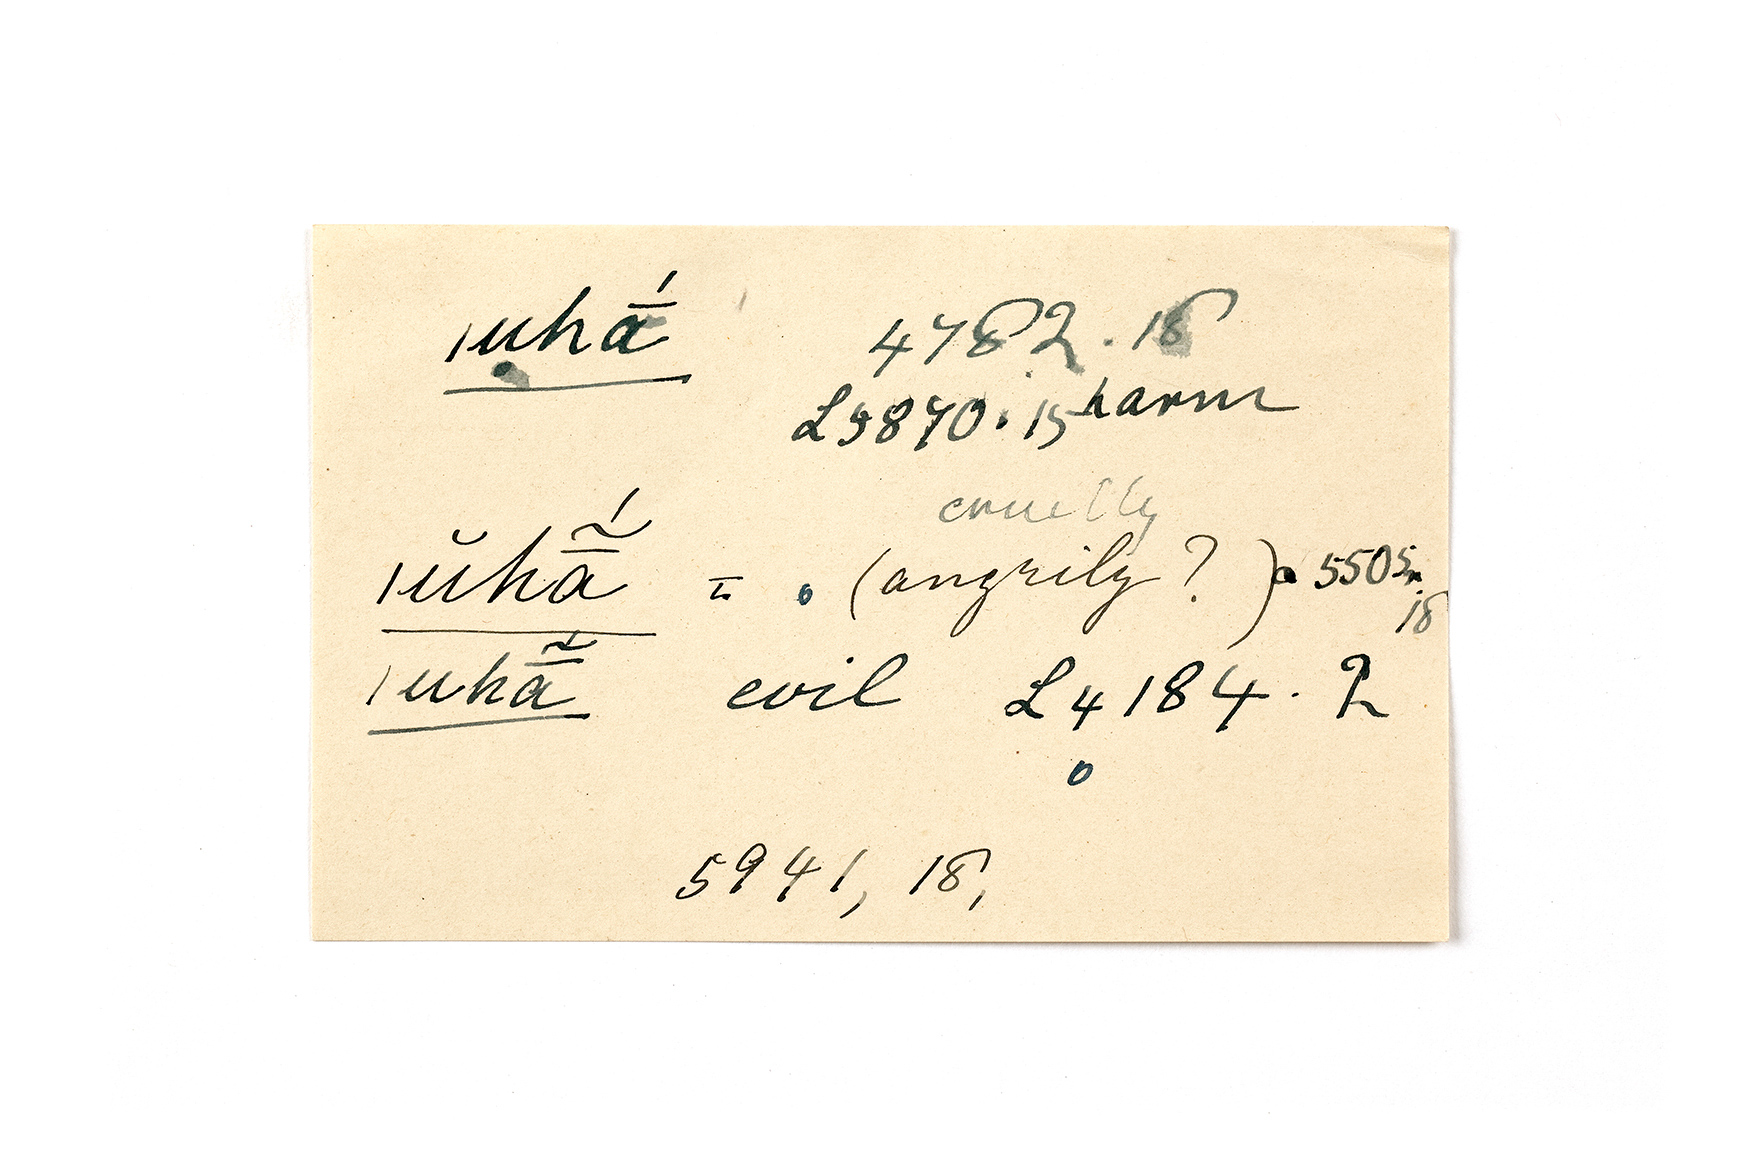 ıuhā́ 4782.18
L9870.15 harm
cruelly
ıŭhā̰́ = (angrily?) 5505.
18
ıuhā̰́ evil L4184.2
5941, 18,